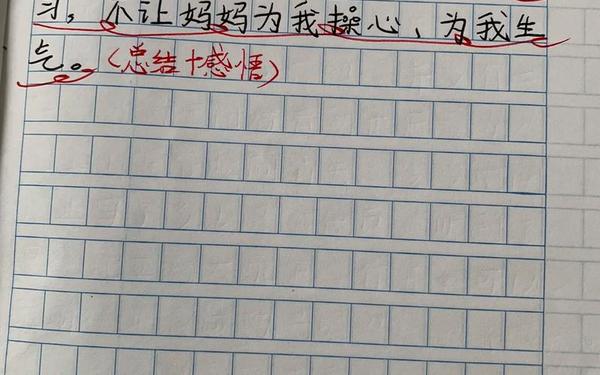 习，不让妈妈为我操心、为我生
气。(总结+感悟)